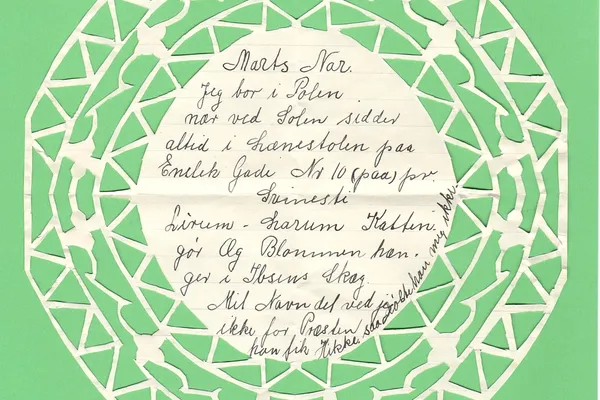 Marts Nar.
Jeg bor i Polen
nær ved Solen sidder
altid i Lænestolen paa
Enelek Gade Nr 10 (paa) pr.
Svinesti
Lirum - Larum Katten
gør Æg Blommen hæn.
ger i Ibsens Skæg
Mit Navn det ved jeg
ikke for Præsten
han fik Hikke, saa døbte han mig ikke.